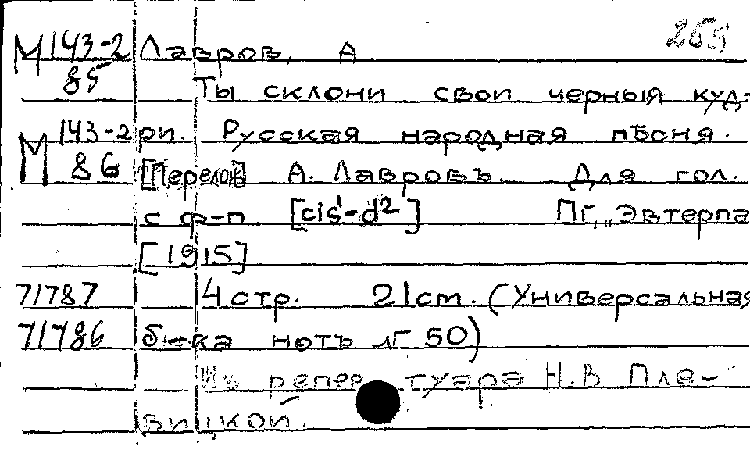 М 143-2 Лавров, А 255
85 Ты склони свои черныя куд-
М 143-2 ри. Русская народная пѣсня.
86 [Перелож] А. Лавровъ. Для гол.
с ф-п. [cis¹-d²] Пг, „Эвтерпа
[1915]
71787 4 стр. 21cm. (Универсальная
71786 б-ка нотъ № 50)
Изъ репертуара Н.В Пле-
вицкой.